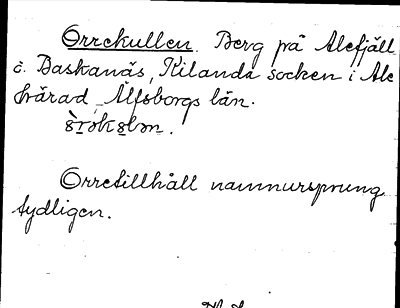 Orrekullen. Berg på Alefjäll
å. Baskanäs, Kilanda socken i Ale
härad, Älfsborgs län.
Orretillhåll namnursprung
tydligen.